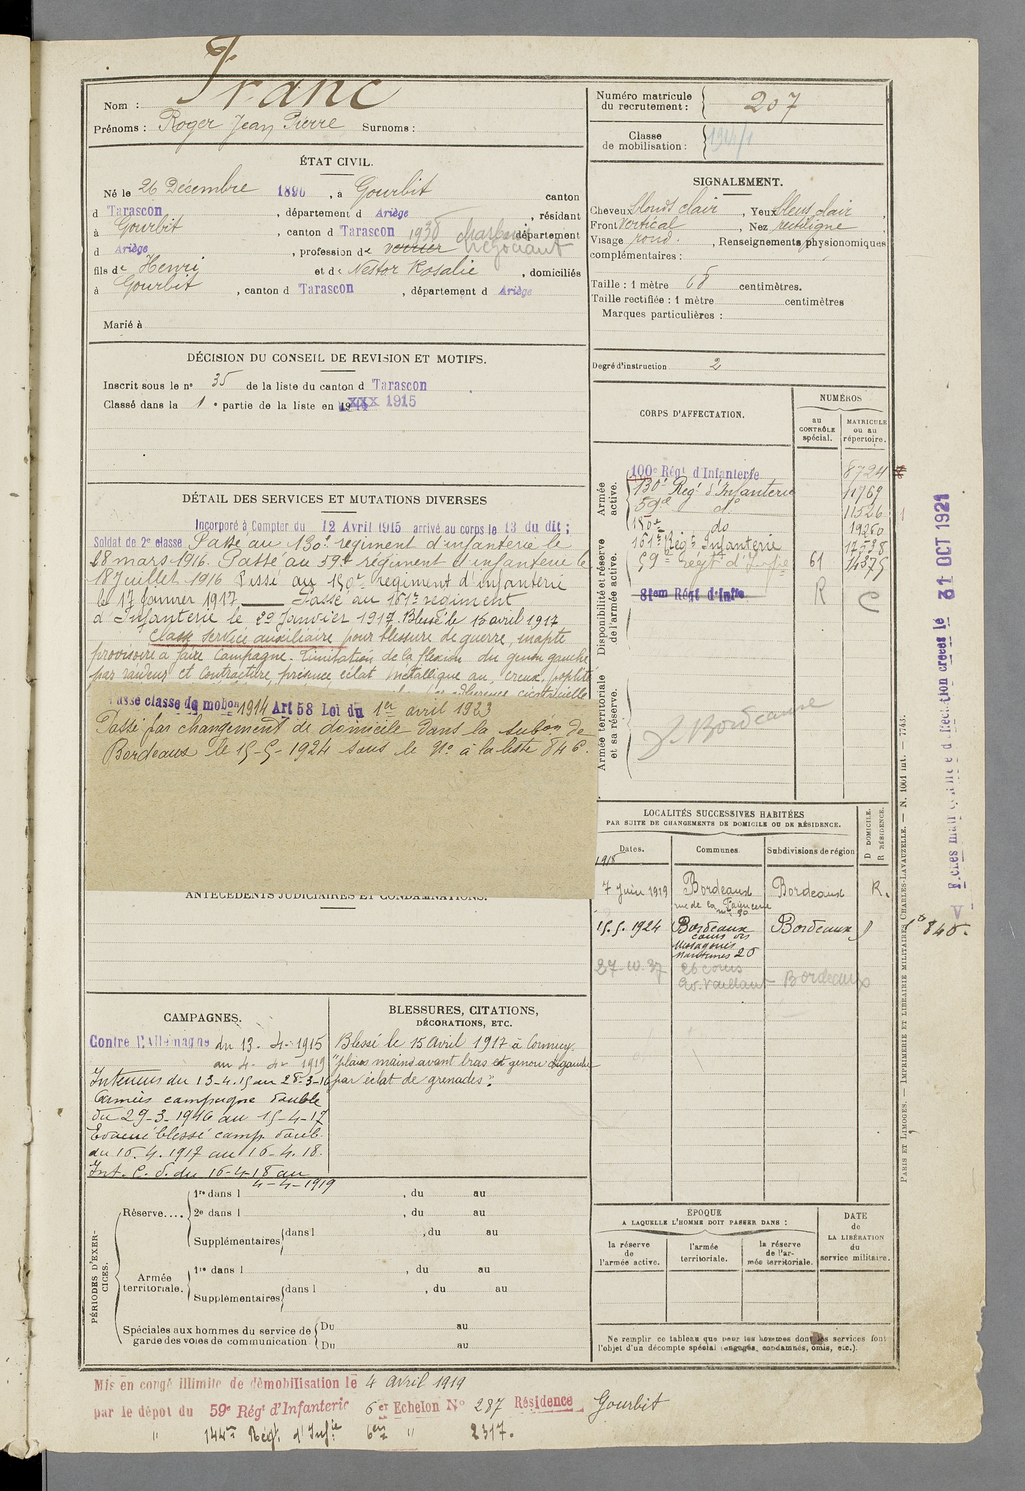 Nom : Franc
Prénoms : Roger Jean Pierre Surnoms :
Numéro matricule du recrutement : 207
Classe de mobilisation :
ÉTAT CIVIL.
Né le 26 Décembre 1896, a Gourbit canton
d Tarascon, département d Ariège, résidant
à Gourbit, canton d Tarascon 1936 département
d Ariège, profession de verrier négociant
fils de Henri et de Nestor Rosalie, domiciliés
à Gourbit, canton d Tarascon, département d Ariège
Marié à
SIGNALEMENT.
Cheveux blonds clair, Yeux bleus clair,
Front Vertical, Nez rectiligne
Visage rond., Renseignements physionomiques
complémentaires :
Taille : 1 mètre 68 centimètres.
Taille rectifiée : 1 mètre centimètres
Marques particulières :
Degré d'instruction 2
DÉCISION DU CONSEIL DE REVISION ET MOTIFS.
Inscrit sous le n° 35 de la liste du canton d Tarascon
Classé dans la 1e partie de la liste en 1915
CORPS D'AFFECTATION.
NUMÉROS
au CONTRÔLE spécial.
MATRICULE ou au répertoire.
Armée active.
100e Régt d'Infanterie 8724
130e Regt d'Infanterie 11769
59e do 11526
180e do 19260
161e Regt Infanterie
59e Régt d'Infie 61 14575
Disponibilité et réserve de l'armée active.
81em Régt d'Infie R C
Armée territoriale et sa réserve.
Bordeaux
DÉTAIL DES SERVICES ET MUTATIONS DIVERSES
Incorporé à Compter du 12 Avril 1915 arrivé au corps le 13 du dit ;
Soldat de 2e classe Passé au 130e régiment d'infanterie le
28 mars 1916. Passé au 59e régiment d'infanterie le
18 juillet 1916 Passé au 180e Régiment d'Infanterie
le 17 janvier 1917 Passé au 161e régiment
d'Infanterie le 29 Janvier 1917. Blessé le 15 avril 1917
Classé Service auxiliaire pour blessure de guerre, inapte
provisoire à faire Campagne. Limitation de la flexion du genou gauche
par raideur et contracture, présence éclat métallique au creux poplité
adhérence cicatricielle
Passé classe de mobon 1914 Art 58 Loi du 1er avril 1923
Passé par changement de domicile dans la subon de
Bordeaux le 15-5-1924 sous le N° à la liste 846.
LOCALITÉS SUCCESSIVES HABITÉES
PAR SUITE DE CHANGEMENTS DE DOMICILE OU DE RÉSIDENCE.
Dates. Communes. Subdivisions de région D DOMICILE. R RÉSIDENCE.
7 Juin 1919 Bordeaux Bordeaux R.
rue de la
15-5-1924 Bordeaux Bordeaux D
cours des
Messageries
Maritimes 26
27-10-37 26 cours Bordeaux
Ed. Vaillant
ANTÉCÉDENTS JUDICIAIRES ET CONDAMNATIONS.
CAMPAGNES.
Contre l'Allemagne du 13-4-1915
au 4-4-1919
Intérieur du 13-4-15 au 28-3-16
Armées campagne double
du 29-3-1916 au 15-4-17
Evacué blessé camp. doub.
du 16-4-1917 au 16-4-18.
Int. C. S. du 16-4-18 au
4-4-1919
BLESSURES, CITATIONS,
DÉCORATIONS, ETC.
Blessé le 15 Avril 1917 à Cormicy
"plaies mains avant bras et genou gauche
par éclat de grenades".
PÉRIODES D'EXERCICES.
Réserve....
1re dans l , du au
2e dans l , du au
Supplémentaires dans l , du au
Armée territoriale.
1re dans l , du au
Supplémentaires dans l , du au
Spéciales aux hommes du service de garde des voies de communication
Du au
Du au
ÉPOQUE
A LAQUELLE L'HOMME DOIT PASSER DANS :
la réserve de l'armée active.
l'armée territoriale.
la réserve de l'armée territoriale.
DATE de LA LIBÉRATION du service militaire.
Ne remplir ce tableau que pour les hommes dont les services font
l'objet d'un décompte spécial (engagés, condamnés, omis, etc.).
Mis en congé illimité de démobilisation le 4 avril 1919
par le dépôt du 59e Régt d'Infanterie 6er Echelon N° 287 Résidence Gourbit
" 144me Régt. d'Infie 6em " 2317.
PARIS ET LIMOGES. — IMPRIMERIE ET LIBRAIRIE MILITAIRES CHARLES-LAVAUZELLE. — N. 1001 int. — 7743.
31 OCT 1921
V